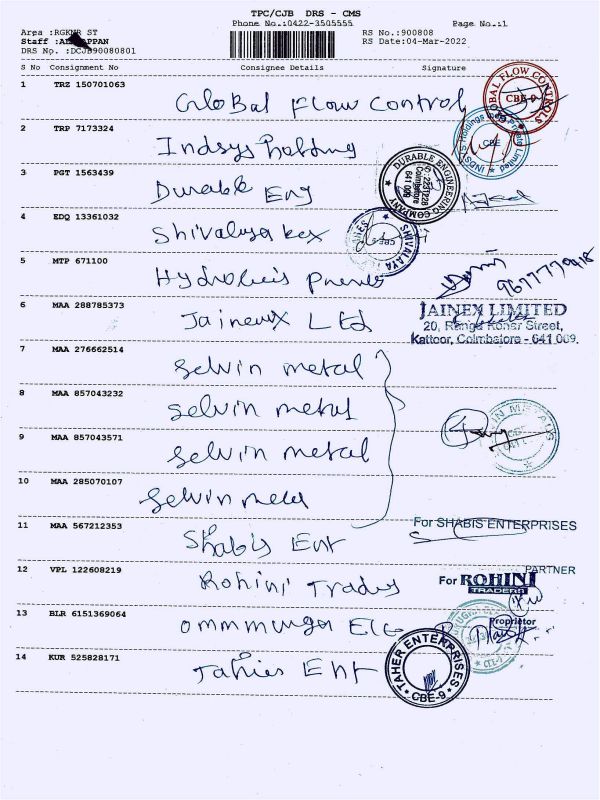 TPC/CJB DRS - CMS
Phone No.:0422-3505555
Page No.:1
Area :RGKNR ST
RS No.:900808
Staff :
RS Date:04-Mar-2022
DRS No. :DCJB90080801
S No Consignment No Consignee Details Signature
1 TRZ 150701063 Global Flow Control
CBE-9
2 TRP 7173324 Indsys holding
CBE
3 PGT 1563439 Durable Eng
DURABLE ENGINEERING COMPANY
Coimbatore
4 EDQ 13361032 Shivalaya
SHIVALAYA
5 MTP 671100
6 MAA 288785373 Ltd
JAINEX LIMITED
20, Street,
Kattoor, Coimbatore - 641 009.
7 MAA 276662514 Selvin metal
8 MAA 857043232 Selvin metal
9 MAA 857043571 Selvin metal
10 MAA 285070107 Selvin
11 MAA 567212353 Shabis Ent
For SHABIS ENTERPRISES
PARTNER
12 VPL 122608219 Rohini
For ROHINI
TRADERS
Proprietor
13 BLR 6151369064
14 KUR 525828171 Ent
TAHER ENTERPRISES
CBE-9